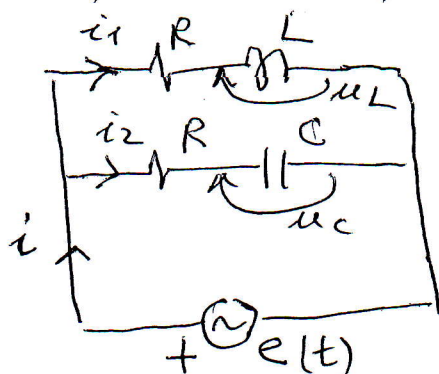 i1 R L
uL
i2 R C
uC
i
+ e(t)